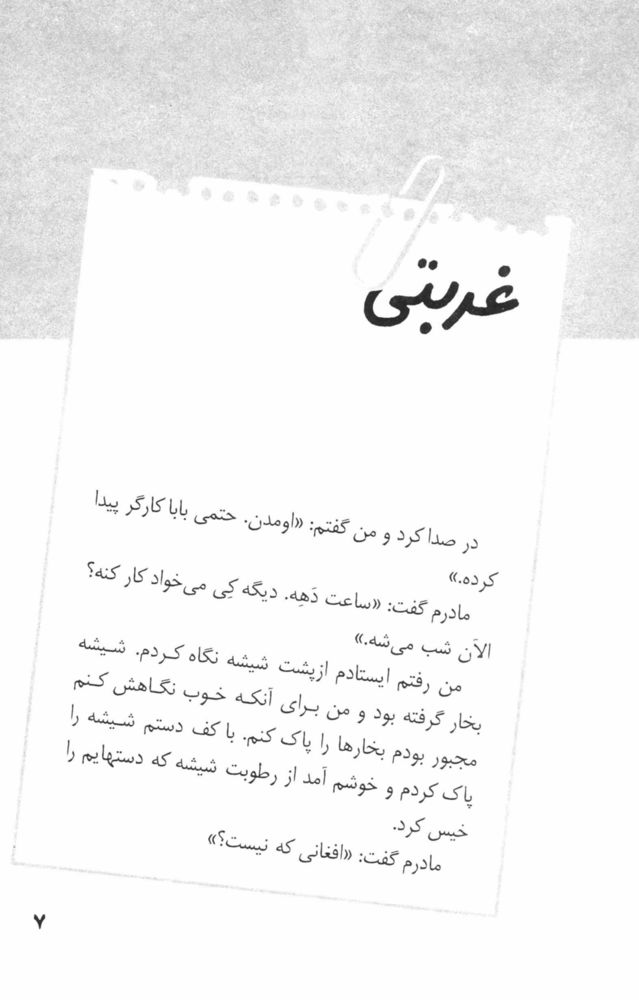 غربتی
در صدا کرد و من گفتم: «اومدن. حتمی بابا کارگر پیدا
کرده.»
مادرم گفت: «ساعت دَهِه. دیگه کِی می‌خواد کار کنه؟
الآن شب می‌شه.»
من رفتم ایستادم ازپشت شیشه نگاه کردم. شیشه
بخار گرفته بود و من برای آنکه خوب نگاهش کنم
مجبور بودم بخارها را پاک کنم. با کف دستم شیشه را
پاک کردم و خوشم آمد از رطوبت شیشه که دستهایم را
خیس کرد.
مادرم گفت: «افغانی که نیست؟»
۷